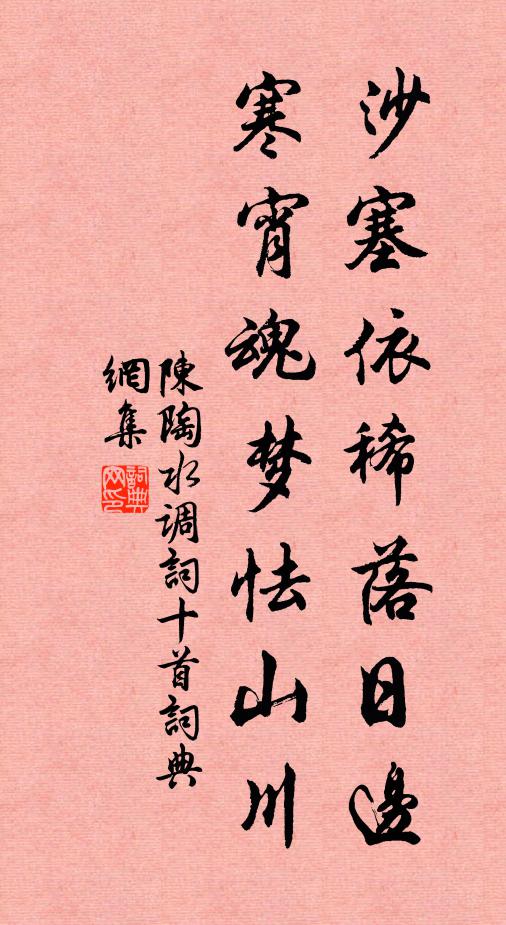 沙塞依稀落日邊
寒宵魂梦怯山川
陳陶水调詞十首詞典
網集
詞典網印